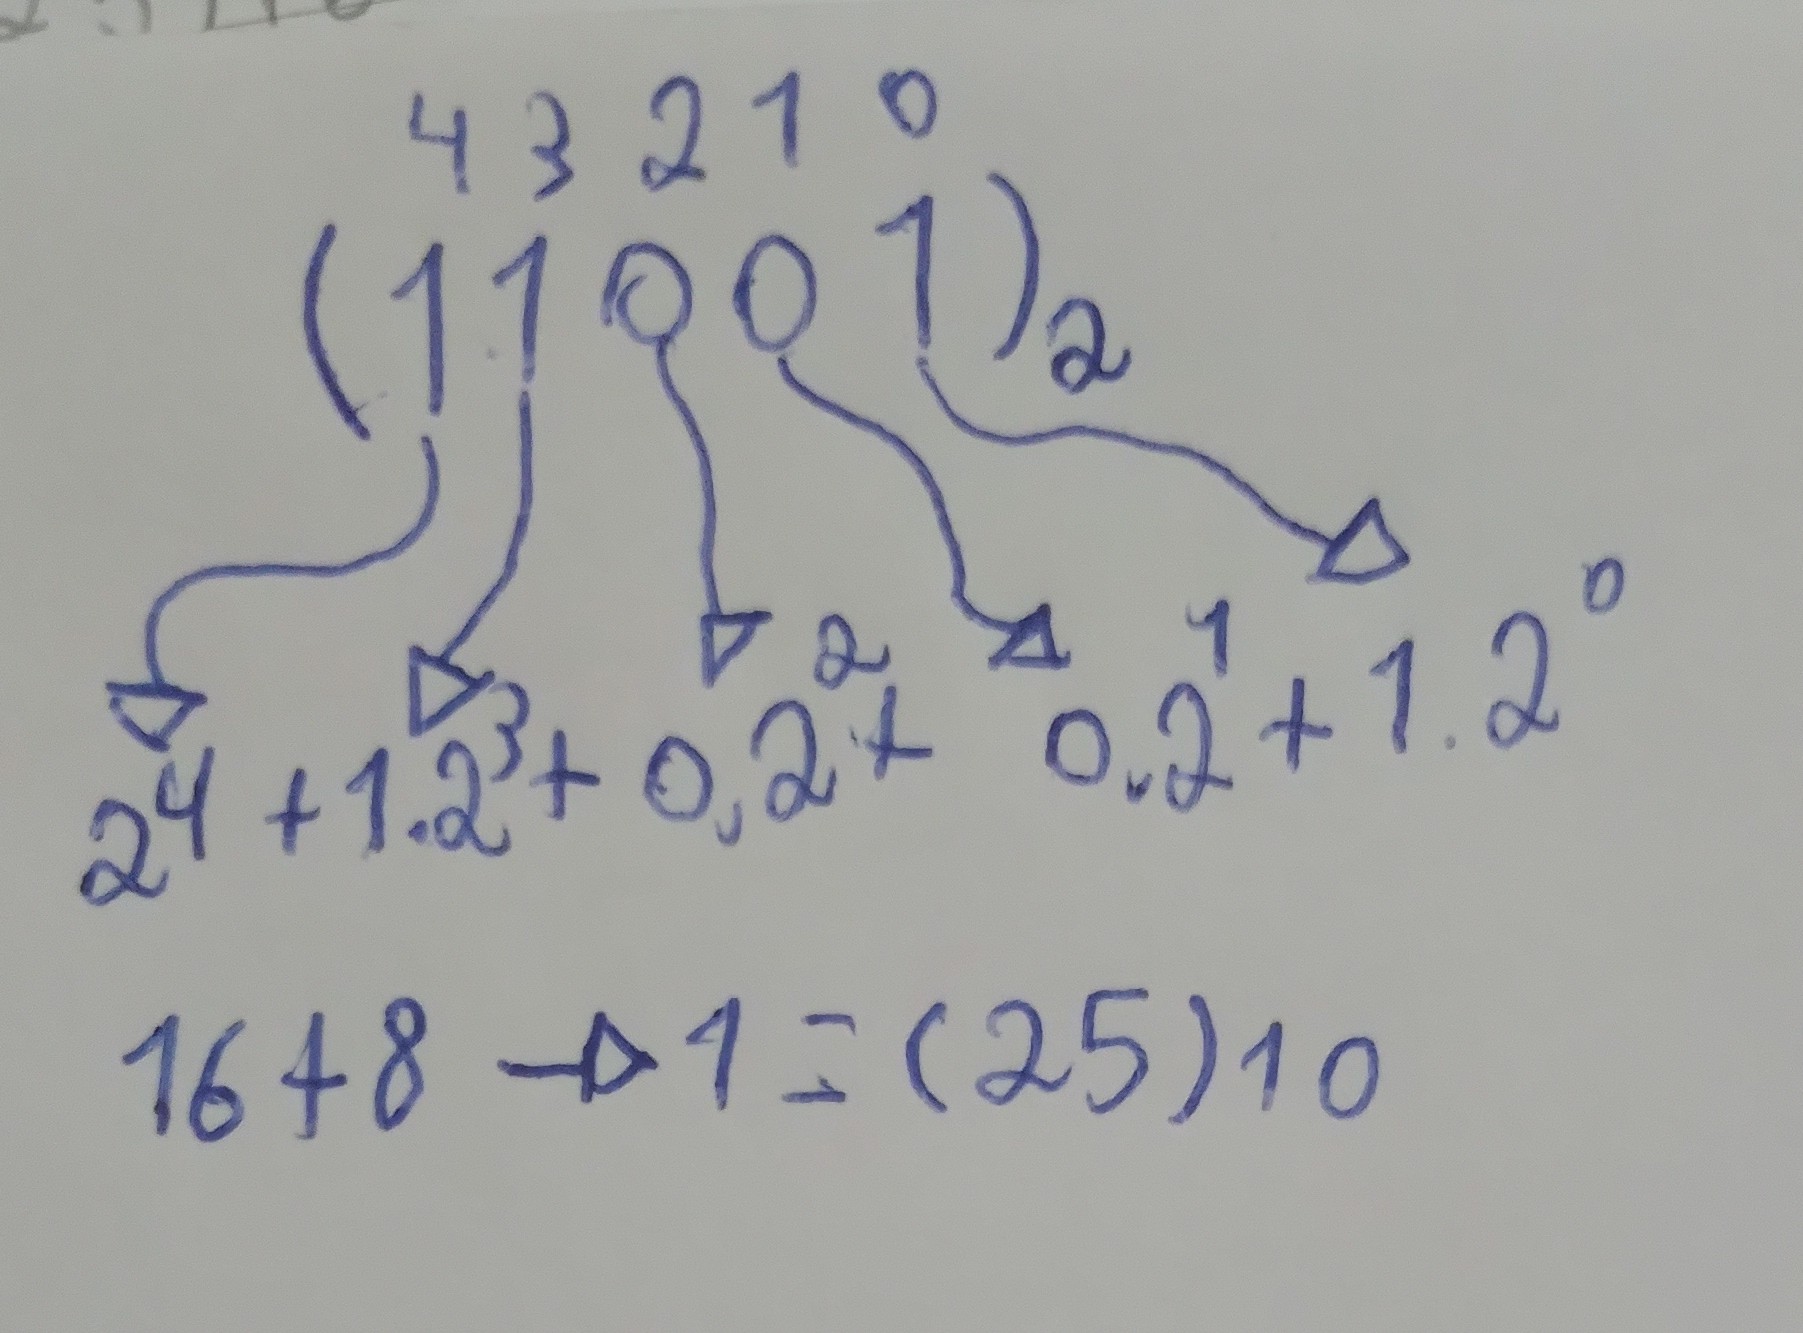 4 3 2 1 0
(11001)₂
2⁴ + 1.2³ + 0.2² + 0.2¹ + 1.2⁰
16+8 → 1 = (25)10